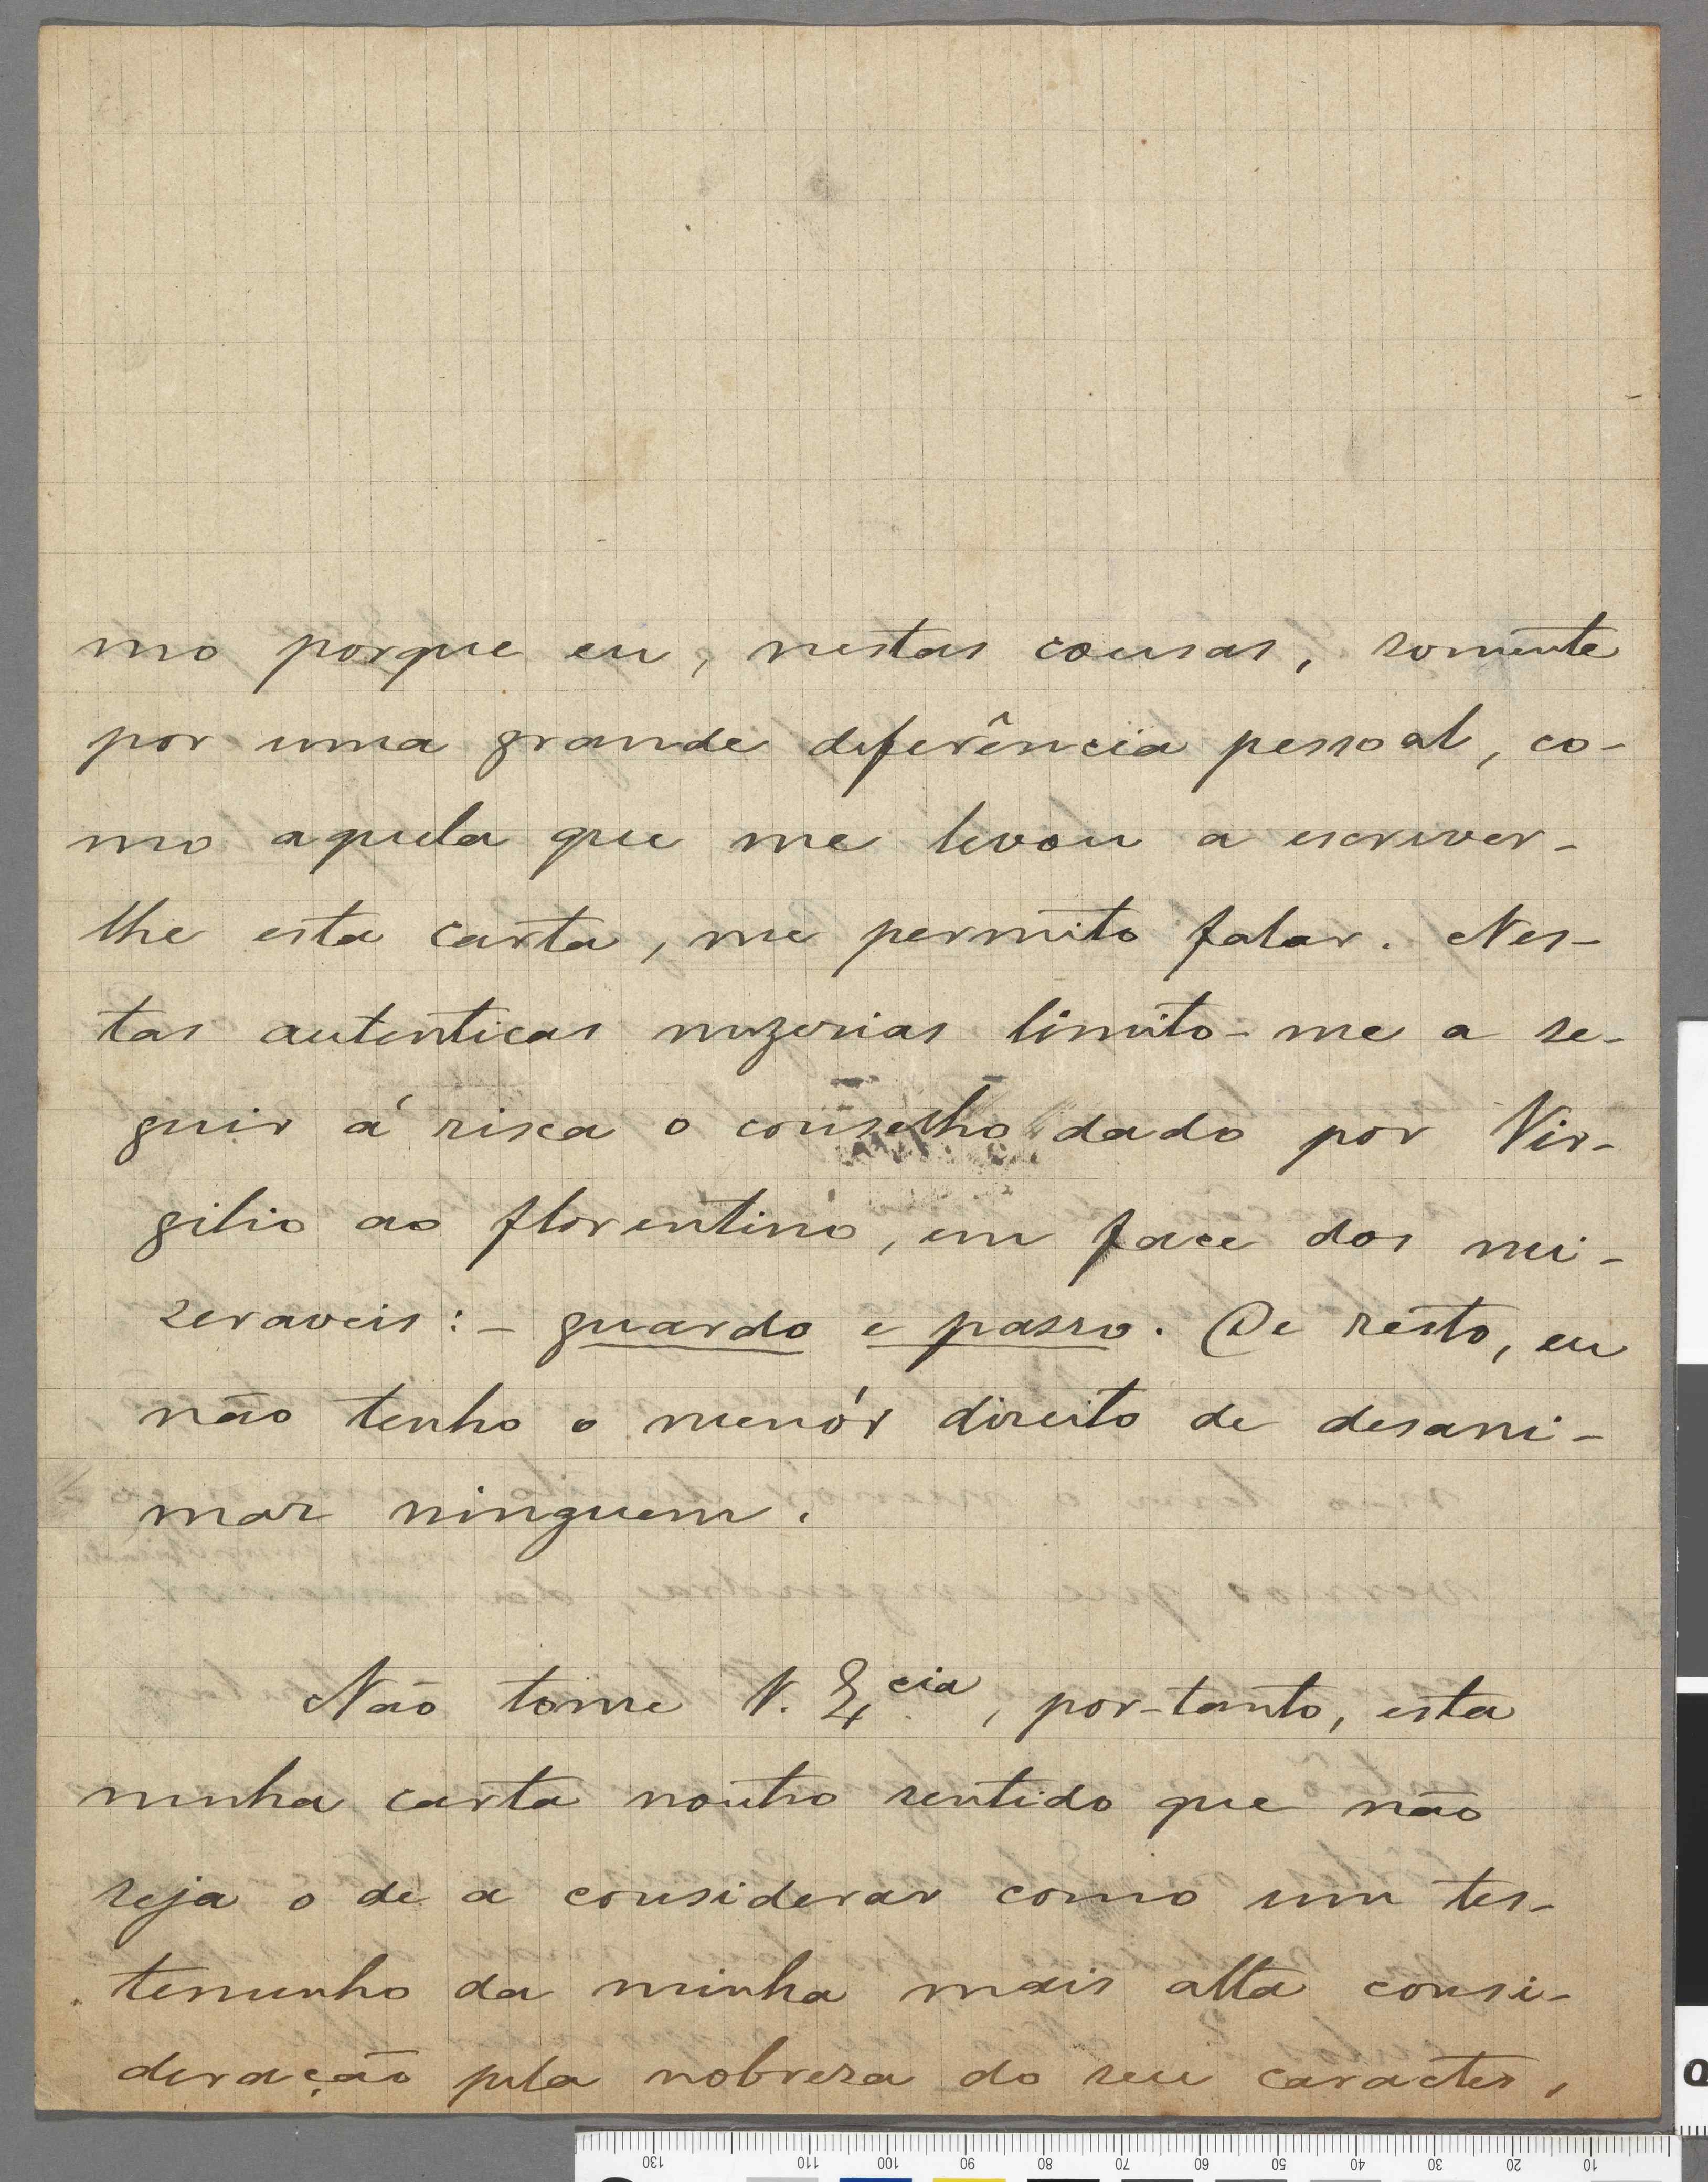 mo porque eu, nestas cousas, somente
por uma grande diferência pessoal, co-
mo aquela que me levou a escrever-
lhe esta carta, me permito falar. Nes-
tas autenticas mizerias limito-me a se-
guir á risca o conselho dado por Vir-
gilio ao florentino, em face dos mi-
zeraveis: - guardo e passo. De resto, eu
não tenho o menór direito de desani-
mar ninguem.
Não tome V. Ex.cia, por-tanto, esta
minha carta noutro sentido que não
seja o de a considerar como um tes-
temunho da minha mais alta consi-
deração pela nobresa do seu caracter,
130 110 100 90 80 70 60 50 40 30 20 10